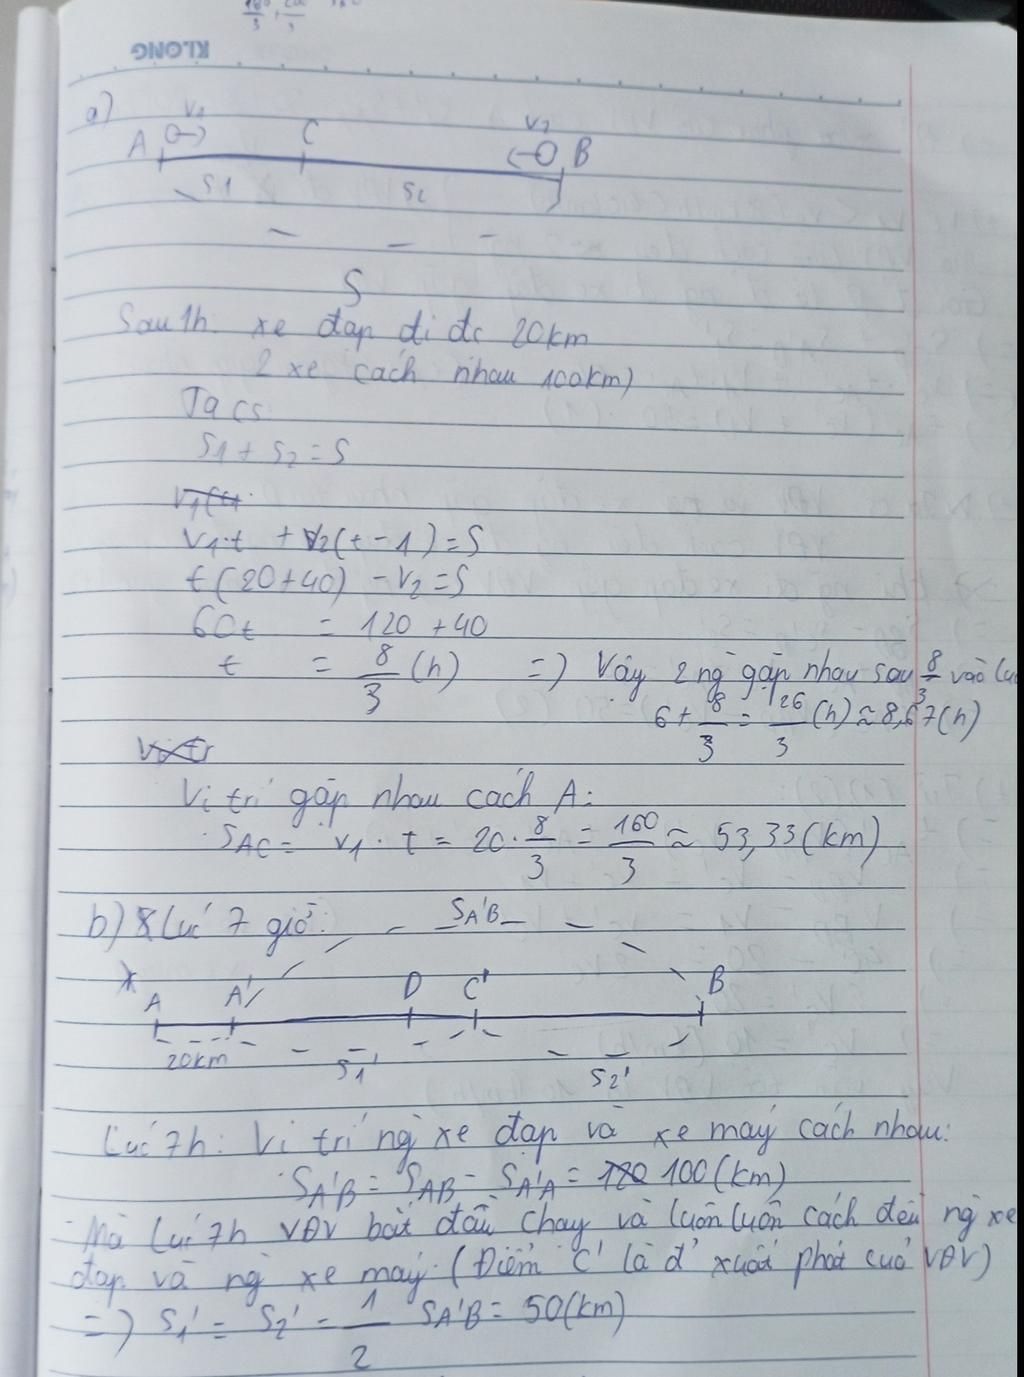 KLONG
a)
A V1 C V2 B
S1 S2
S
Sau 1h xe đạp đi đc 20km
2 xe cách nhau 100km)
Ta có:
S1 + S2 = S
V1.t + V2(t-1) = S
t(20+40) - V2 = S
60t = 120 + 40
t = 8/3 (h) => Vậy 2 ng gặp nhau sau 8/3 vào lúc
6 + 8/3 = 26/3 (h) ≈ 8,67 (h)
Vị trí gặp nhau cách A:
SAC = V1 . t = 20 . 8/3 = 160/3 ≈ 53,33 (km)
b) Lúc 7 giờ: SA'B
A A' D C' B
20km S1' S2'
Lúc 7h: Vị trí ng xe đạp và xe máy cách nhau:
SA'B = SAB - SA'A = 100 (km)
- Mà lúc 7h VĐV bắt đầu chạy và luôn luôn cách đều ng xe
đạp và ng xe máy. (Điểm C' là đ' xuất phát của VĐV)
=> S1' = S2' = 1/2 SA'B = 50 (km)